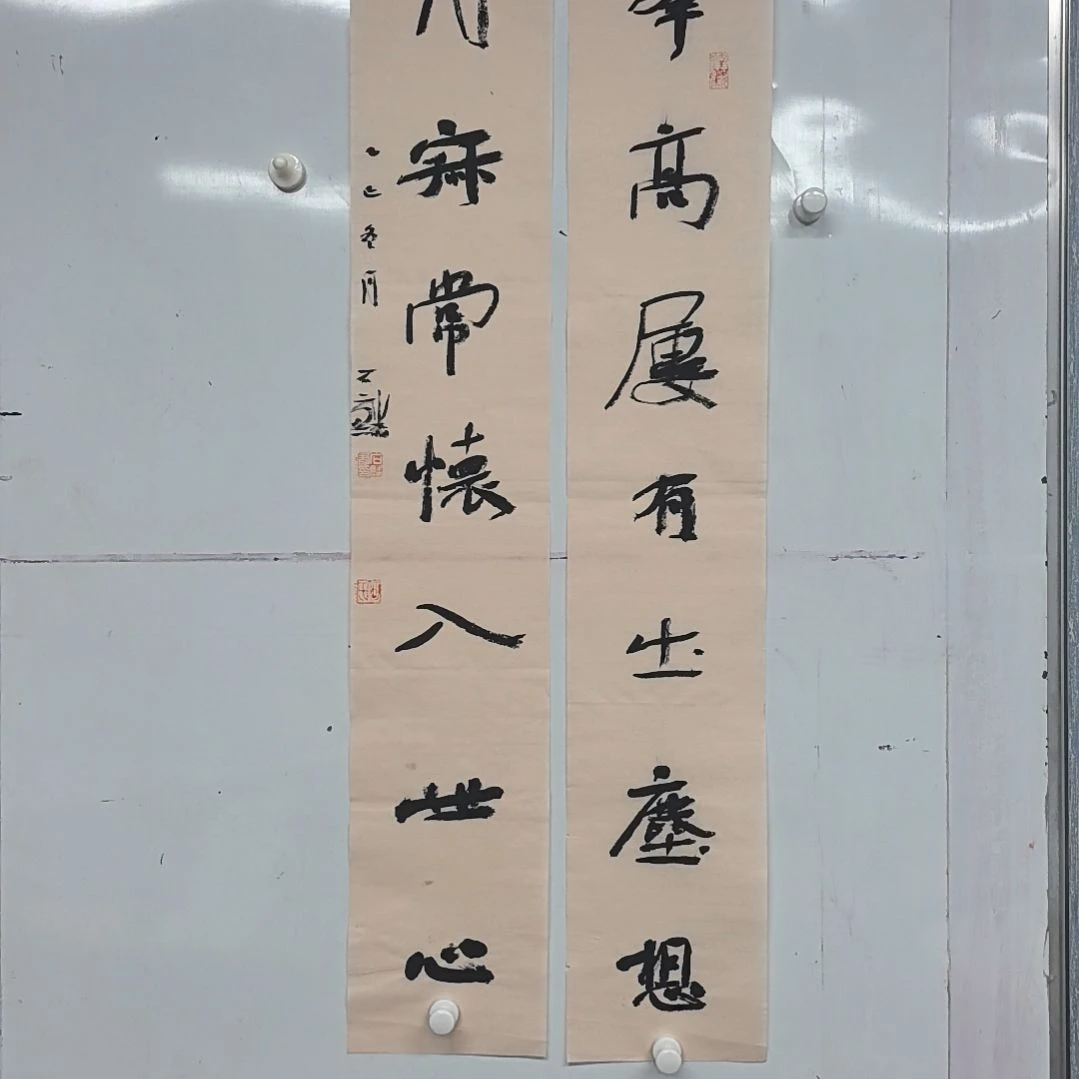 高屢有出塵想
寂常懷入世心
乙巳冬月